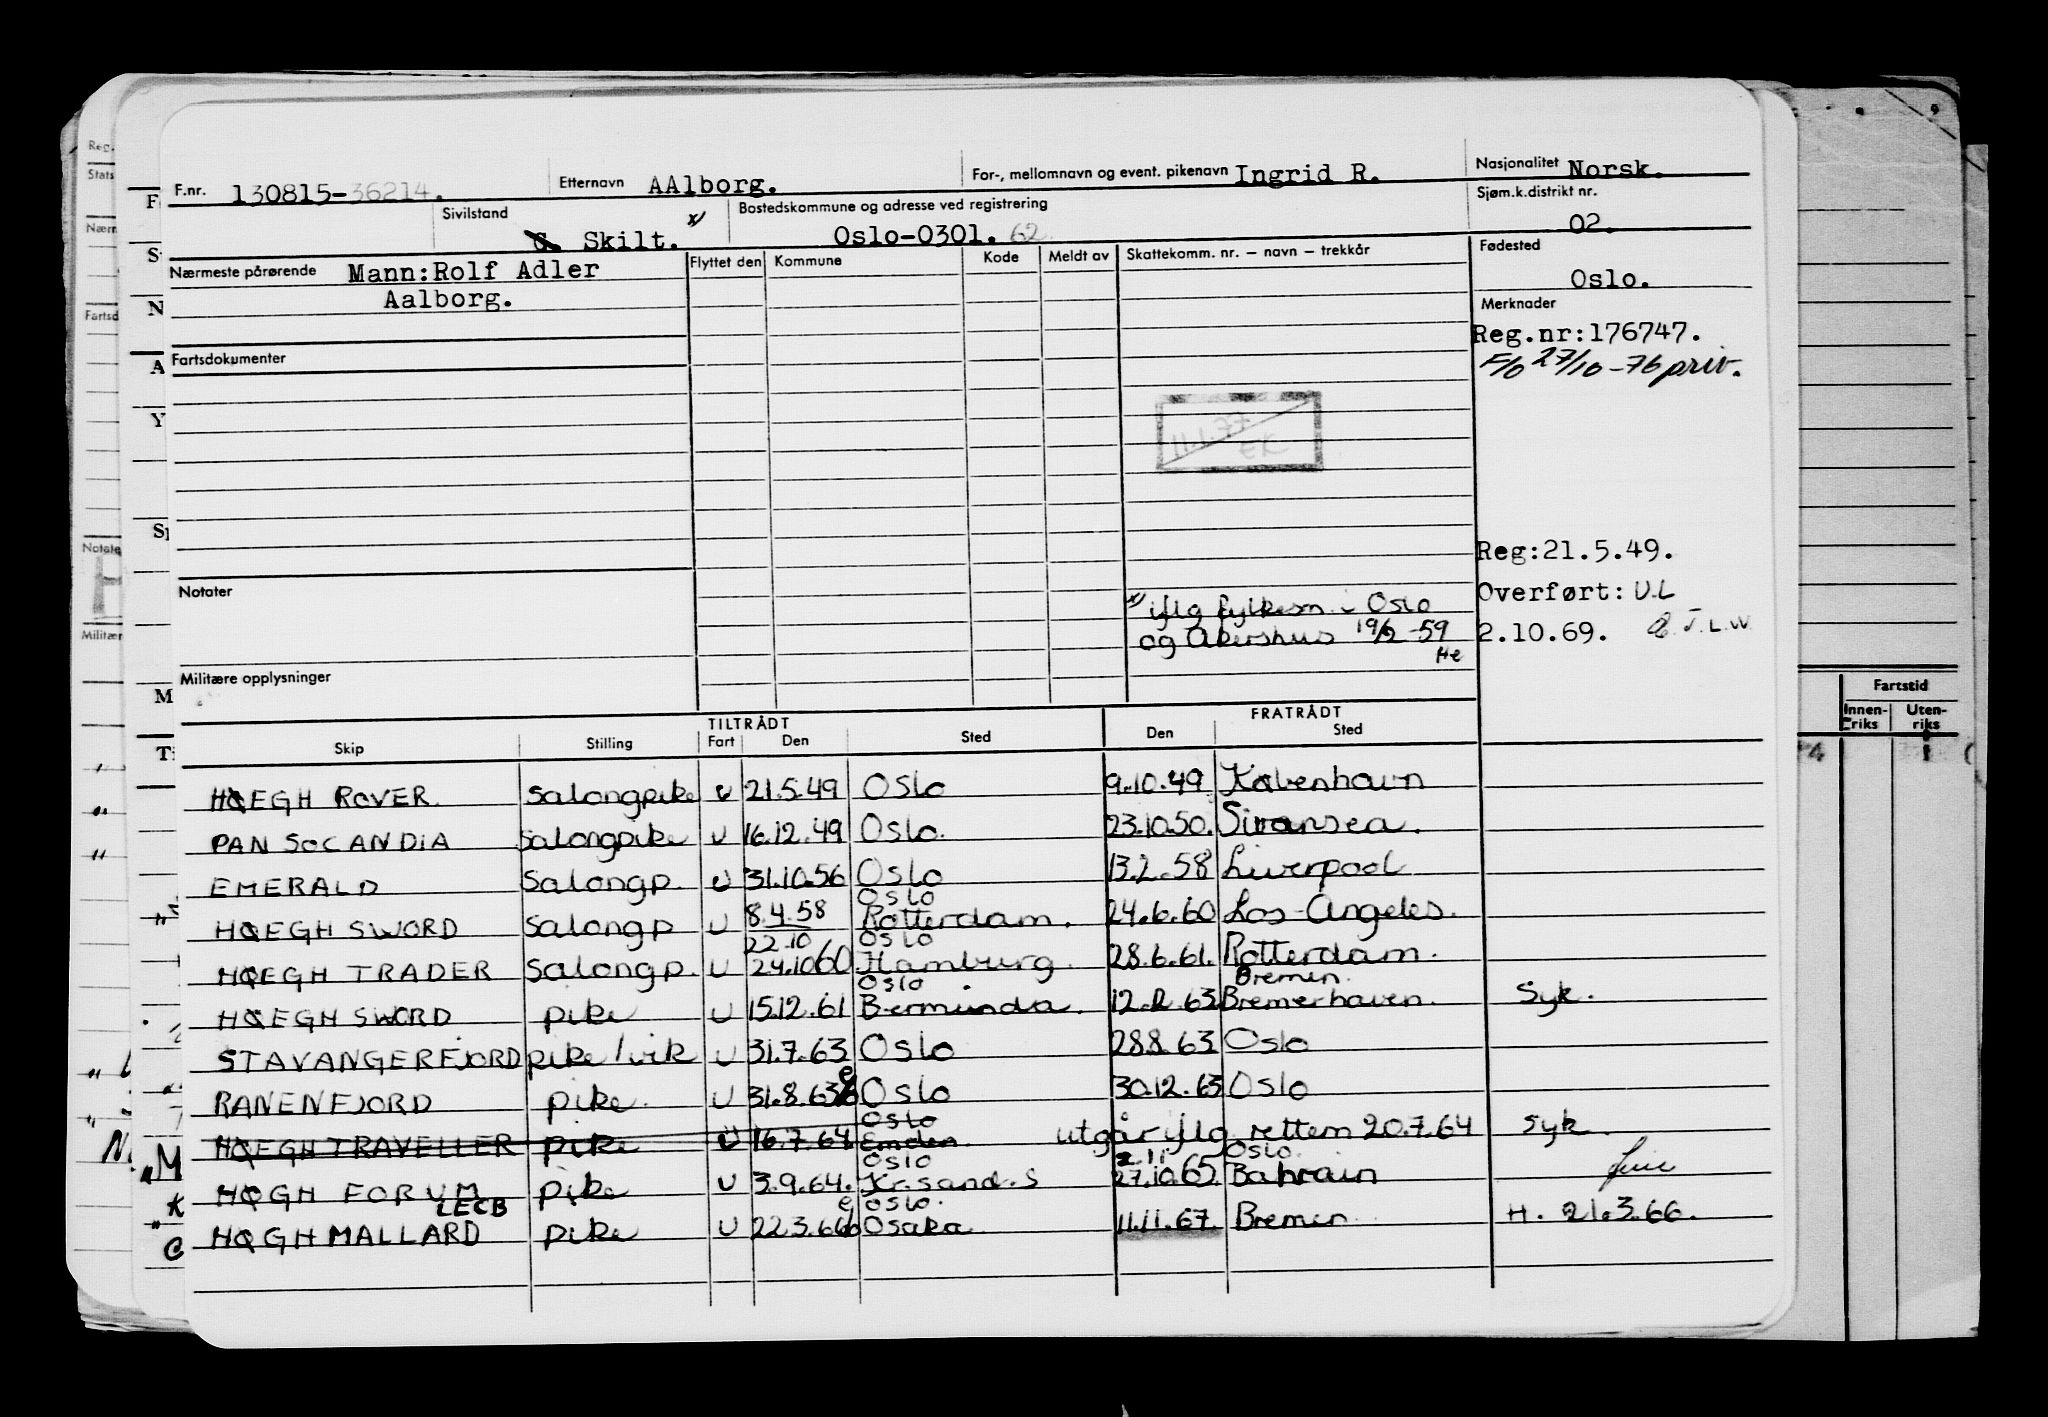 F.nr. 130815-36214.
Etternavn AAlborg.
For-, mellomnavn og event. pikenavn Ingrid R.
Nasjonalitet Norsk.
Sivilstand G. Skilt. x)
Bostedskommune og adresse ved registrering
Oslo-0301. 62
Sjøm.k.distrikt nr.
02.
Nærmeste pårørende Mann:Rolf Adler
Aalborg.
Flyttet den Kommune Kode Meldt av Skattekomm. nr. – navn – trekkår
Fødested
Oslo.
Merknader
Reg.nr:176747.
F/O 27/10-76 priv.
Fartsdokumenter
11.1.77
EK
Reg:21.5.49.
Overført: U.L
2.10.69. J.L.W.
Notater
x) iflg fylkesm. i Oslo
og Akershus 19/2-59
He
Militære opplysninger
TILTRÅDT FRATRÅDT
Skip Stilling Fart Den Sted Den Sted
HØEGH ROVER Salongpike U 21.5.49 Oslo 9.10.49 København
PAN SOCANDIA Salongpike U 16.12.49 Oslo. 23.10.50. Swansea.
EMERALD Salongp. U 31.10.56 Oslo 13.2.58 Liverpool
Oslo
HØEGH SWORD Salongp U 8.4.58 Rotterdam. 24.6.60 Los-Angeles.
22.10 Oslo
HØEGH TRADER Salongp. U 24.10 60 Hamburg. 28.6.61. Rotterdam.
Oslo Bremen.
HØEGH SWORD pike U 15.12.61 Bermunda. 12.2.63 Bremerhaven. Syk.
STAVANGERFJORD pike/vik U 31.7.63 Oslo 28.8.63 Oslo
RANENFJORD pike. U 31.8.63 Oslo 30.12.63 Oslo
Oslo
HØEGH TRAVELLER pike U 16.7.64 Emden. utgår iflg rettem 20.7.64 Syk.
Oslo 2.11 Oslo.
HØGH FORUM pike U 3.9.64. Kr.sand.S 27.10.65. Bahrain
LECB Oslo.
HØGH MALLARD pike U 22.3.66 Osaka 11.11.67. Bremen H. 21.3.66.
Fartstid
Innen-
riks
Uten-
riks